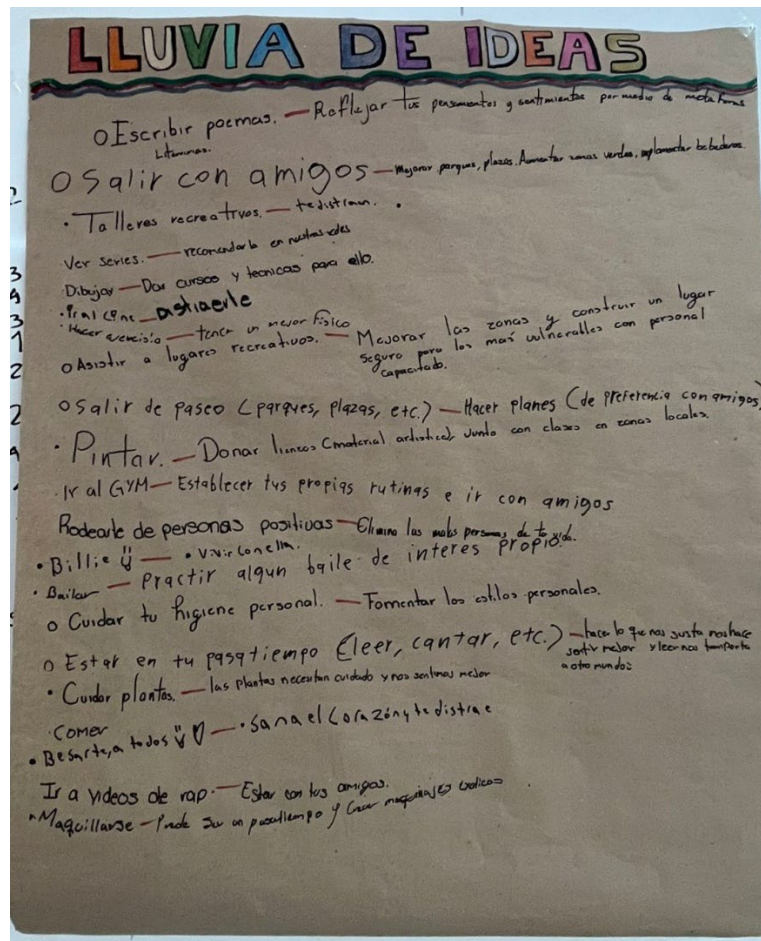 LLUVIA DE IDEAS
o Escribir poemas. — Reflejar tus pensamientos y sentimientos por medio de metaforas
Literarias.
o Salir con amigos — Mejorar parques, plazas. Aumentar zonas verdes, bebederos.
• Talleres recreativos. — te distraen.
Ver series. — recomendarla en nuestras redes
Dibujar — Dar cursos y tecnicas para ello.
• Ir al cine —
• Hacer ejercicio — tener un mejor Fisico
o Asistir a lugares recreativos. — Mejorar las zonas y construir un lugar
seguro para los mas vulnerables con personal
capacitado.
o Salir de paseo (parques, plazas, etc.) — Hacer planes (de preferencia con amigos)
• Pintar. — Donar lienzos (material artistico) Junto con clases en zonas locales.
• Ir al GYM — Establecer tus propias rutinas e ir con amigos
Rodearte de personas positivas — Elimina las malas personas de tu vida.
• Billie — • Vivir con ella.
• Bailar — Practir algun baile de interes propio.
o Cuidar tu higiene personal. — Fomentar los estilos personales.
o Estar en tu pasatiempo (leer, cantar, etc.) — hacer lo que nos gusta nos hace
sentir mejor y leer nos transporta
a otro mundo
• Cuidar plantas. — las plantas necesitan cuidado y nos sentimos mejor
Comer
• Besarte, a todos — • Sana el Corazón y te distrae
Ir a videos de rap. — Estar con tus amigos.
• Maquillarse — Puede ser un pasatiempo y Crear maquillajes